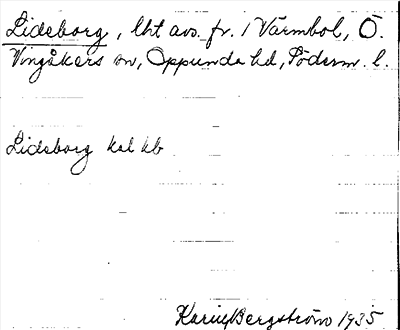 Lideborg, lht avs. fr. 1 Värmbol, Ö.
Vingåkers sn, Oppunda hd, Söderm. l.
Lideborg hal kb
Karin Bergström 1935